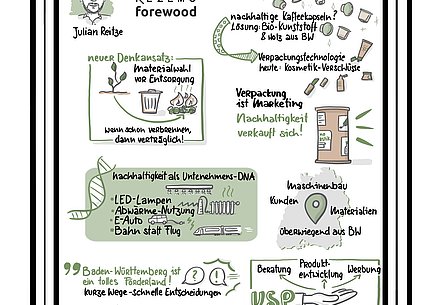 REZEMO
forewood
Julian Reitze
nachhaltige Kaffeekapseln?
Lösung: Bio-Kunststoff
& Holz aus BW
Verpackungstechnologie
heute: Kosmetik-Verschlüsse
neuer Denkansatz:
Materialwahl
vor Entsorgung
wenn schon verbrennen,
dann verträglich!
Verpackung
ist Marketing
Nachhaltigkeit
verkauft sich!
Nachhaltigkeit als Unternehmens-DNA
• LED-Lampen
• Abwärme-Nutzung
• E-Auto
• Bahn statt Flug
Maschinenbau
Kunden
Materialien
überwiegend aus BW
"Baden-Württemberg ist
ein tolles Förderland!
kurze Wege - schnelle Entscheidungen
? !
Beratung
Produkt-
entwicklung
Werbung
USP